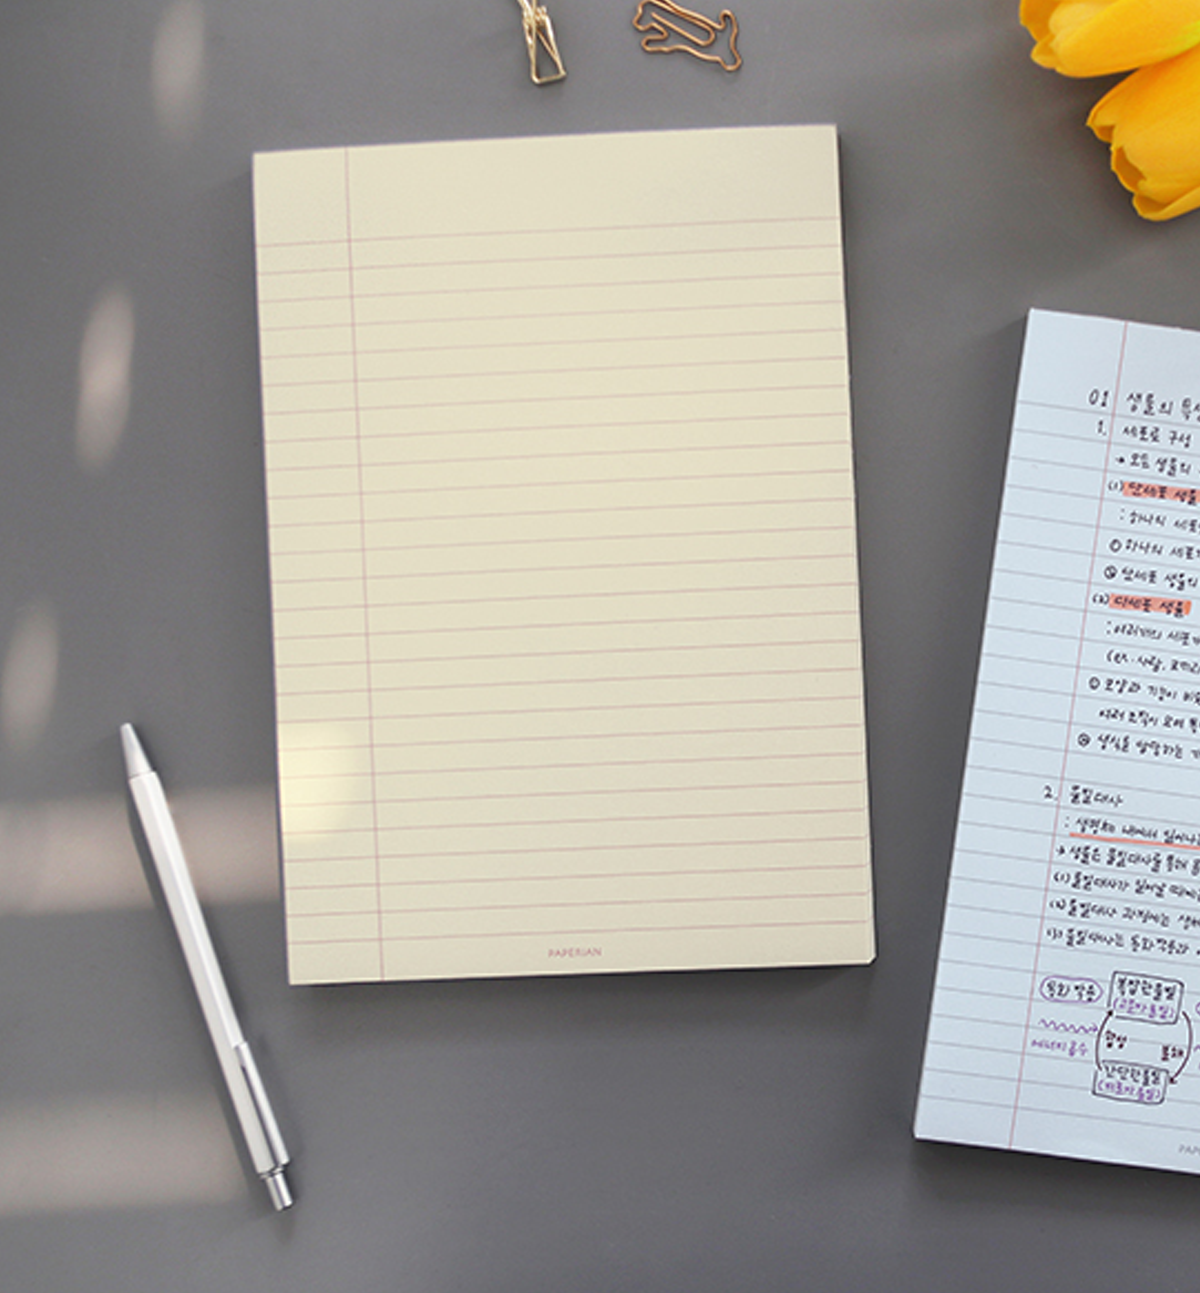 PAPERIAN
01 생물의 특성
1. 세포로 구성
→ 모든 생물의
(1) 단세포 생물
: 하나의 세포
① 하나의 세포
② 단세포 생물의
(2) 다세포 생물
: 여러개의 세포
(ex. 사람, 코끼리
① 모양과 기능이 비슷
여러 조직이 모여
2. 물질대사
: 생명체 내에서 일어나
→ 생물은 물질대사를 통해
(1) 물질대사가 일어날 때에는
(2) 물질대사 과정에는
(3) 물질대사는 동화작용과
동화작용
복잡한물질
(고분자물질)
에너지흡수
합성
분해
간단한물질
(저분자물질)